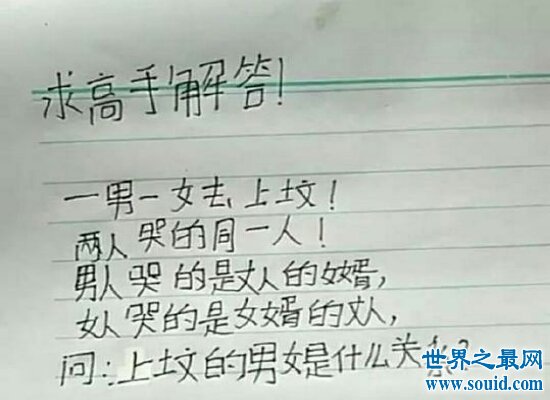 求高手解答!
一男一女去上坟!
两人哭的同一人!
男人哭的是丈人的女婿,
女人哭的是女婿的丈人,
问:上坟的男女是什么关系?
世界之最网
www.souid.com